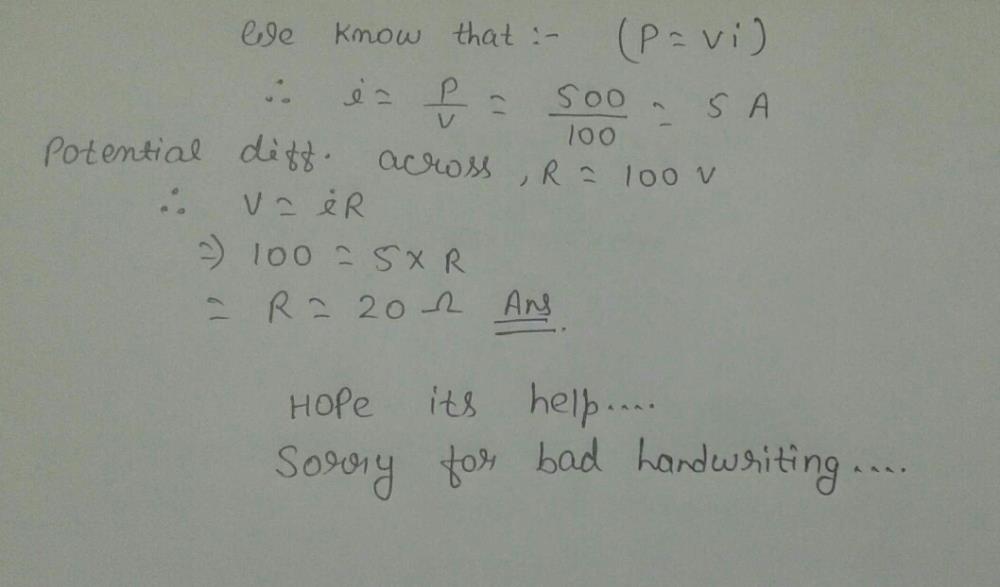 We know that :- (P = Vi)
∴ i = P/V = 500/100 = 5 A
Potential diff. across, R = 100 V
∴ V = iR
⇒ 100 = 5 × R
= R = 20 Ω Ans.
HOPe its help....
Sorry for bad handwriting....